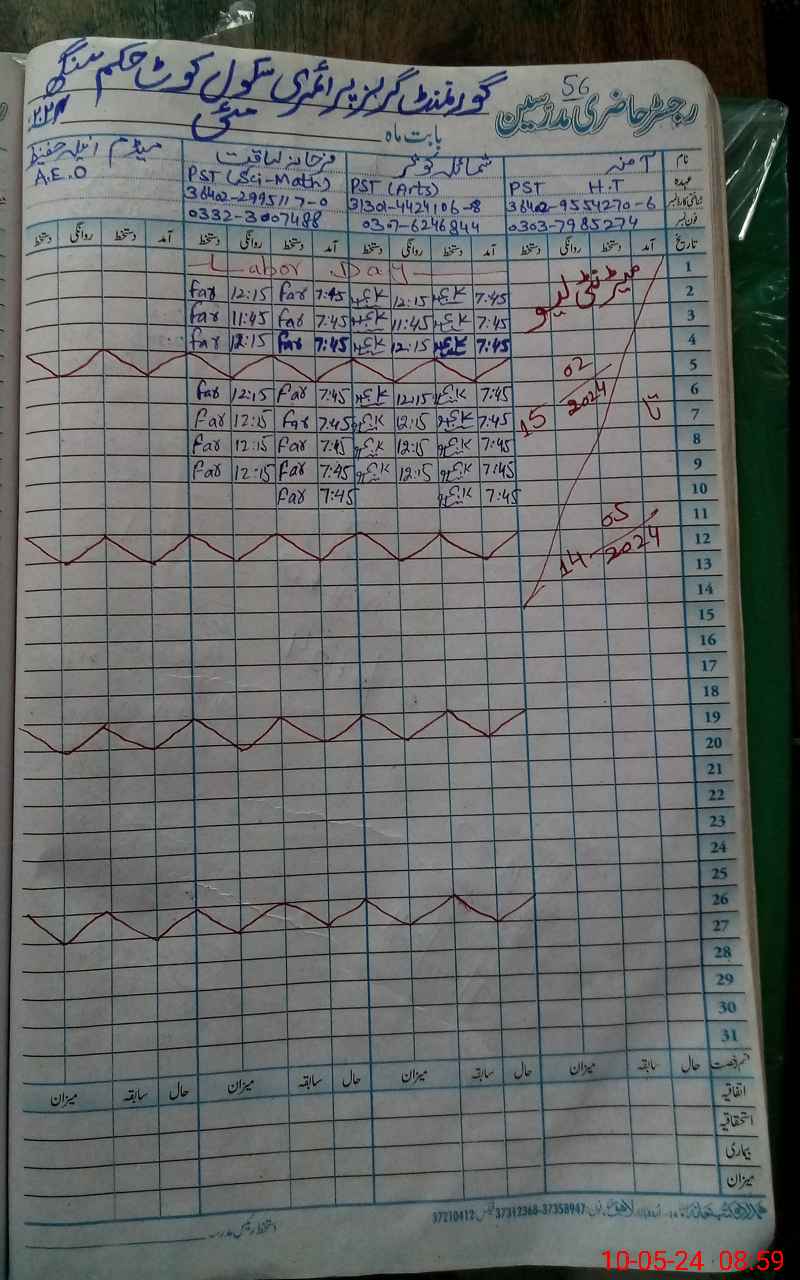 56
گورنمنٹ گرلز پرائمری سکول کوٹ حکم سنگھ
رجسٹر حاضری مدرسین
بابت ماہ مئی
نام آمنہ شمائلہ کوثر فرحانہ لیاقت میڈم انیلہ حفیظ
عہدہ PST H.T PST (Arts) PST (Sci-Math) A.E.O
شناختی کارڈ نمبر 36402-9554270-6 31301-4424106-8 36402-2995117-0
فون نمبر 0303-7985274 0307-6246844 0332-3007488
تاریخ آمد دستخط روانگی دستخط آمد دستخط روانگی دستخط آمد دستخط روانگی دستخط آمد دستخط روانگی دستخط
1 Labor Day
2 میٹرنٹی لیو 7:45 12:15 7:45 far 12:15 far
3 7:45 11:45 7:45 far 11:45 far
4 7:45 12:15 7:45 far 12:15 far
5
6 15 02 2024 7:45 12:15 7:45 far 12:15 far
7 تا 7:45 12:15 7:45 far 12:15 far
8 7:45 12:15 7:45 far 12:15 far
9 7:45 12:15 7:45 far 12:15 far
10 7:45 7:45 far
11
12 14 05 2024
13
14
15
16
17
18
19
20
21
22
23
24
25
26
27
28
29
30
31
قسم رخصت حال سابقہ میزان حال سابقہ میزان حال سابقہ میزان حال سابقہ میزان
اتفاقیہ
استحقاقیہ
بیماری
میزان
37358947-37312368 37210412
دستخط رئیس مدرسہ
10-05-24 08:59